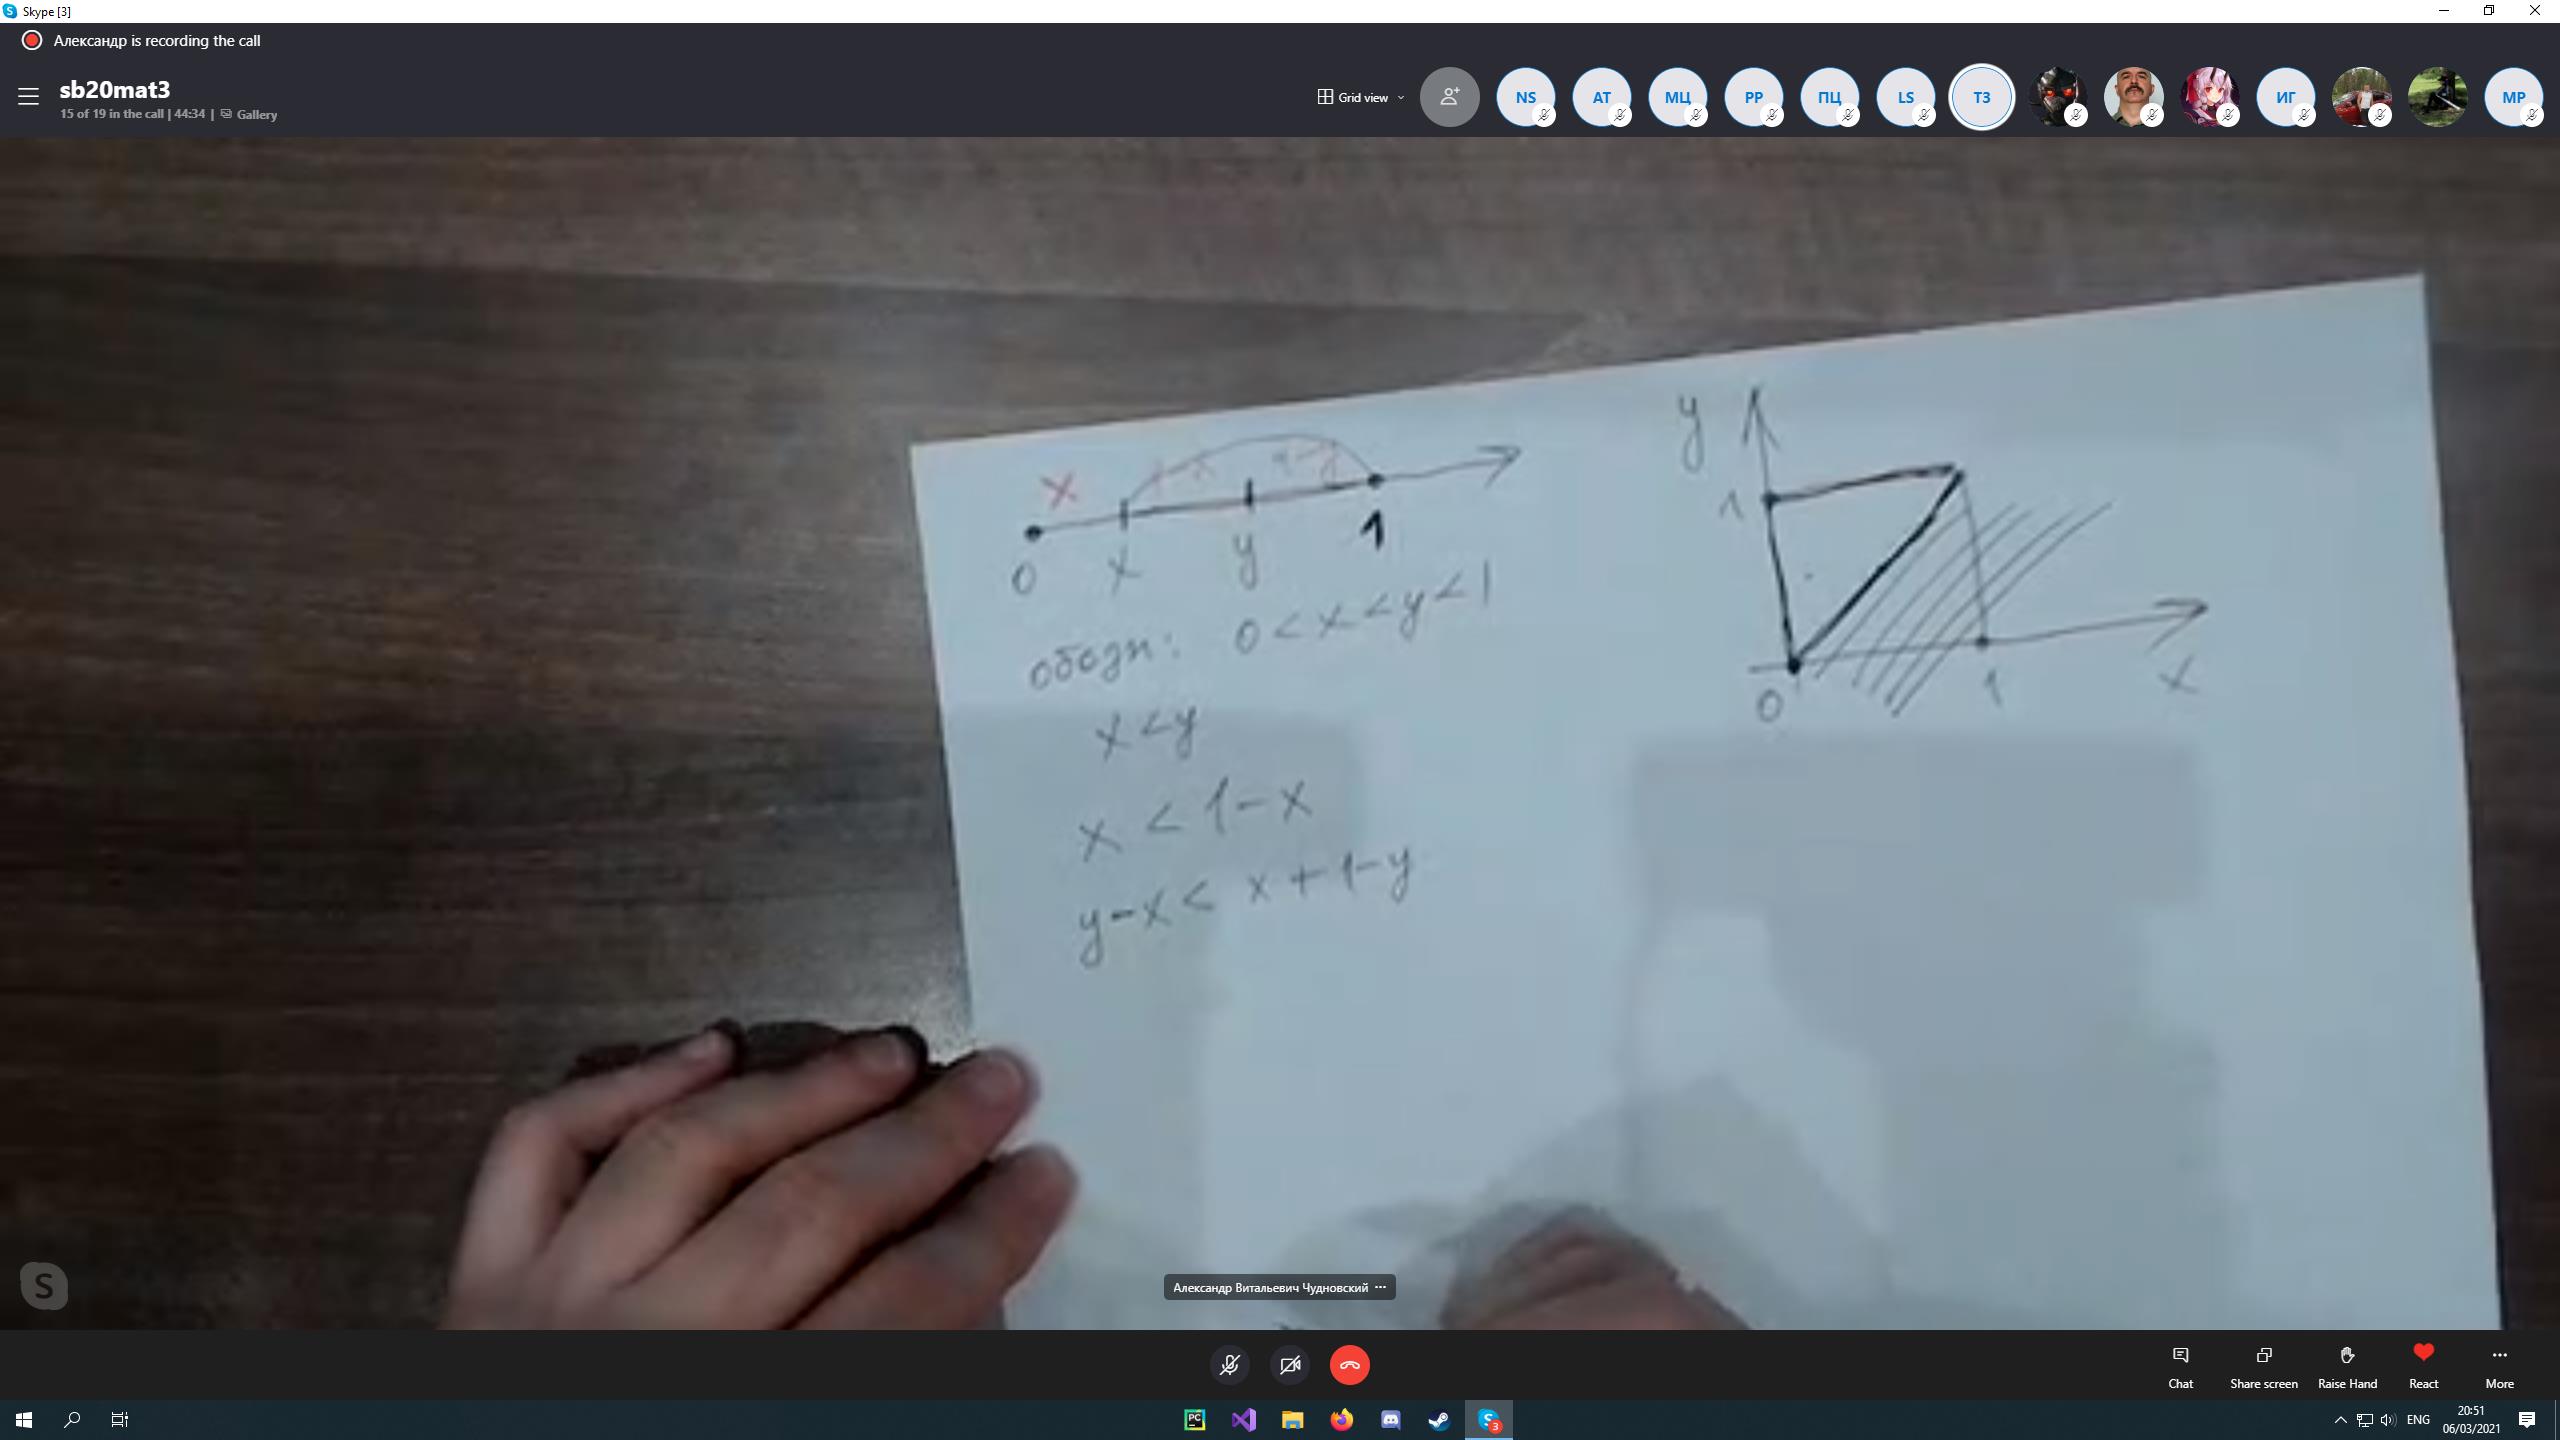 Skype [3]
Александр is recording the call
sb20mat3
15 of 19 in the call | 44:34 | Gallery
Grid view
NS
AT
МЦ
PP
ПЦ
LS
ТЗ
ИГ
MP
x
1-y
0
x
y
1
обозн: 0 < x < y < 1
x < y
x < 1 - x
y - x < x + 1 - y
y
1
0
1
x
S
Александр Витальевич Чудновский
Chat
Share screen
Raise Hand
React
More
PC
S
3
ENG
20:51
06/03/2021